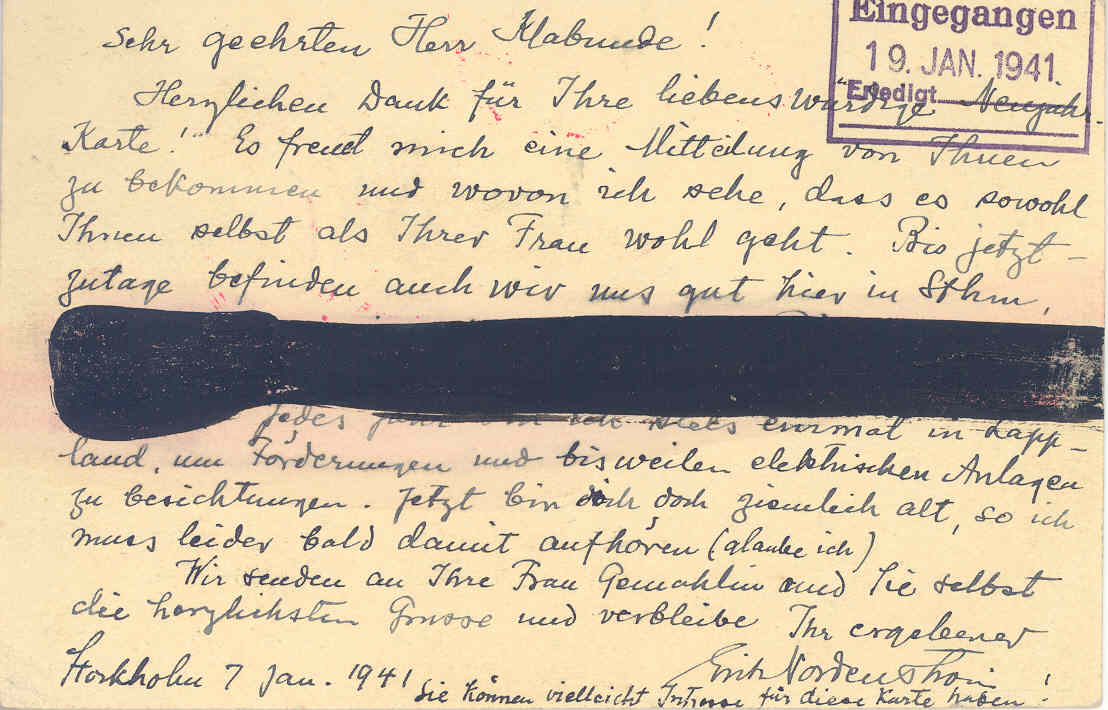 Eingegangen
19. JAN. 1941.
Erledigt
Sehr geehrten Herr Klabunde!
Herzlichen Dank für Ihre liebenswürdige Neujahr-
Karte! Es freut mich eine Mitteilung von Ihnen
zu bekommen und wovon ich sehe, dass es sowohl
Ihnen selbst als Ihrer Frau wohl geht. Bis jetzt-
zutage befinden auch wir uns gut hier in Sthm,
Jedes Jahr bin ich stets einmal in Lapp-
land, um Förderungen und bisweilen elektrischen Anlagen
zu besichtungen. Jetzt bin ich doch ziemlich alt, so ich
muss leider bald damit aufhören (glaube ich)
Wir senden an Ihre Frau Gemahlin und Sie selbst
die herzlichsten Grüsse und verbleibe Ihr ergebener
Stockholm 7 Jan. 1941
Sie können vielleicht Intresse für diese Karte haben!